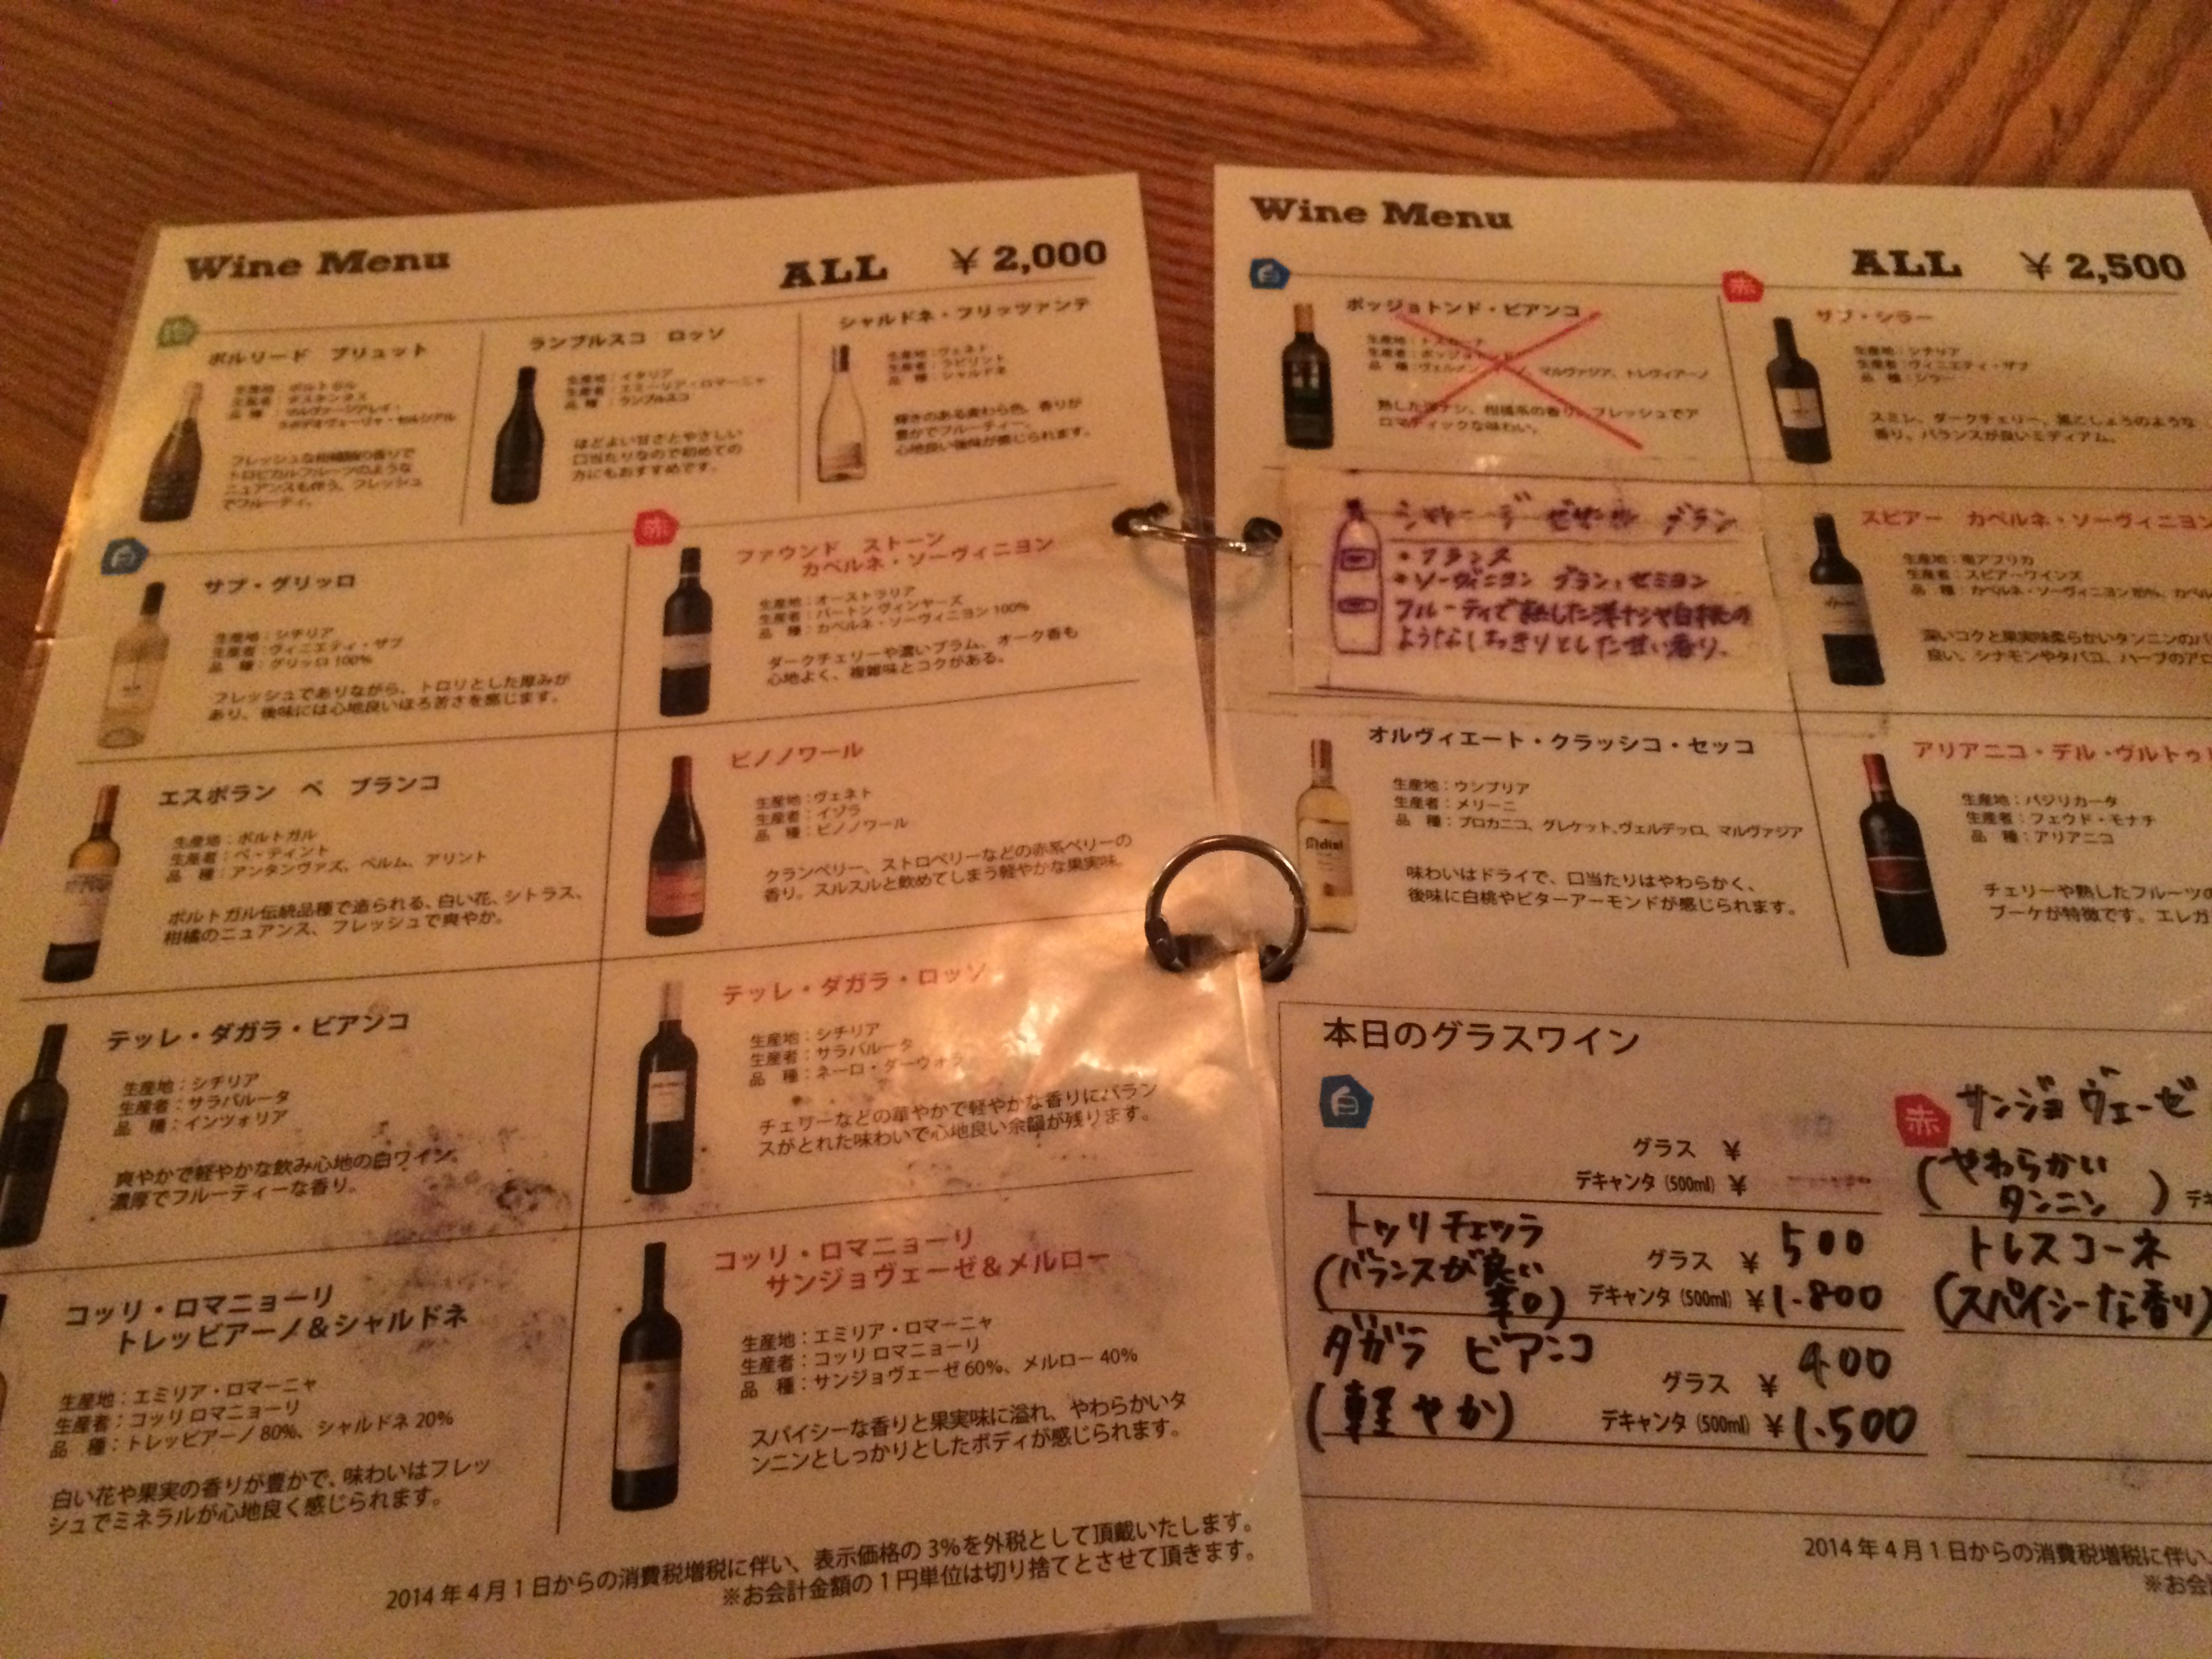 Wine Menu
ALL ￥2,000
泡
ポルリード ブリュット
生産地：ポルトガル
フレッシュな柑橘類の香りで
トロピカルフルーツのような
ニュアンスも伴う、フレッシュ
でフルーティ。
ランブルスコ ロッソ
生産地：イタリア
生産者：エミーリア・ロマーニャ
品 種：ランブルスコ
ほどよい甘さとやさしい
口当たりなので初めての
方にもおすすめです。
シャルドネ・フリッツァンテ
生産地：ヴェネト
生産者：ラビリント
品 種：シャルドネ
輝きのある麦わら色。香りが
豊かでフルーティー。
心地良い後味が感じられます。
白
サブ・グリッロ
生産地：シチリア
生産者：ヴィニエティ・ザブ
品 種：グリッロ100%
フレッシュでありながら、トロリとした厚みが
あり、後味には心地良いほろ苦さを感じます。
エスポラン ペ ブランコ
生産地：ポルトガル
生産者：ペ・ティント
品 種：アンタンヴァズ、ペルム、アリント
ポルトガル伝統品種で造られる、白い花、シトラス、
柑橘のニュアンス、フレッシュで爽やか。
テッレ・ダガラ・ビアンコ
生産地：シチリア
生産者：サラバルータ
品 種：インツォリア
爽やかで軽やかな飲み心地の白ワイン。
濃厚でフルーティーな香り。
コッリ・ロマニョーリ
トレッビアーノ＆シャルドネ
生産地：エミリア・ロマーニャ
生産者：コッリ ロマニョーリ
品 種：トレッビアーノ 80%、シャルドネ 20%
白い花や果実の香りが豊かで、味わいはフレッ
シュでミネラルが心地良く感じられます。
赤
ファウンド ストーン
カベルネ・ソーヴィニヨン
生産地：オーストラリア
生産者：バートン ヴィンヤーズ
品 種：カベルネ・ソーヴィニヨン 100%
ダークチェリーや濃いプラム、オーク香も
心地よく、複雑味とコクがある。
ピノノワール
生産地：ヴェネト
生産者：イゾラ
品 種：ピノノワール
クランベリー、ストロベリーなどの赤系ベリーの
香り。スルスルと飲めてしまう軽やかな果実味。
テッレ・ダガラ・ロッソ
生産地：シチリア
生産者：サラバルータ
品 種：ネーロ・ダーヴォラ
チェリーなどの華やかで軽やかな香りにバラン
スがとれた味わいで心地良い余韻が残ります。
コッリ・ロマニョーリ
サンジョヴェーゼ＆メルロー
生産地：エミリア・ロマーニャ
生産者：コッリ ロマニョーリ
品 種：サンジョヴェーゼ 60%、メルロー 40%
スパイシーな香りと果実味に溢れ、やわらかいタ
ンニンとしっかりとしたボディが感じられます。
2014年4月1日からの消費税増税に伴い、表示価格の3%を外税として頂戴いたします。
※お会計金額の1円単位は切り捨てとさせて頂きます。
Wine Menu
ALL ￥2,500
白
ポッジョトンド・ビアンコ
生産地：トスカーナ
マルヴァジア、トレヴィアーノ
熟した洋ナシ、柑橘系の香り。フレッシュでア
ロマティックな味わい。
シャトー デ ゼサール ブラン
・フランス
・ソーヴィニヨン ブラン、セミヨン
フルーティで熟した洋ナシや白桃の
ようなしっかりとした甘い香り。
オルヴィエート・クラッシコ・セッコ
生産地：ウンブリア
生産者：メリーニ
品 種：プロカニコ、グレケット、ヴェルデッロ、マルヴァジア
味わいはドライで、口当たりはやわらかく、
後味に白桃やビターアーモンドが感じられます。
赤
サブ・シラー
生産地：シチリア
生産者：ヴィニエティ・ザブ
品 種：シラー
スミレ、ダークチェリー、黒こしょうのような
香り。バランスが良いミディアム。
スピアー カベルネ・ソーヴィニヨン
生産地：南アフリカ
生産者：スピアーワインズ
品 種：カベルネ・ソーヴィニヨン
深いコクと果実味柔らかいタンニンの
良い。シナモンやタバコ、ハーブのアロ
アリアニコ・デル・ヴルトゥ
生産地：バジリカータ
生産者：フェウド・モナチ
品 種：アリアニコ
チェリーや熟したフルーツの
ブーケが特徴です。エレガ
本日のグラスワイン
白
グラス ￥
デキャンタ (500ml) ￥
トッリチェッラ
(バランスが良い
辛口)
グラス ￥500
デキャンタ (500ml) ￥1.800
ダガラ ビアンコ
(軽やか)
グラス ￥400
デキャンタ (500ml) ￥1.500
赤
サンジョヴェーゼ
(やわらかい
タンニン)
デキ
トレスコーネ
(スパイシーな香り)
2014年4月1日からの消費税増税に伴い、
※お会